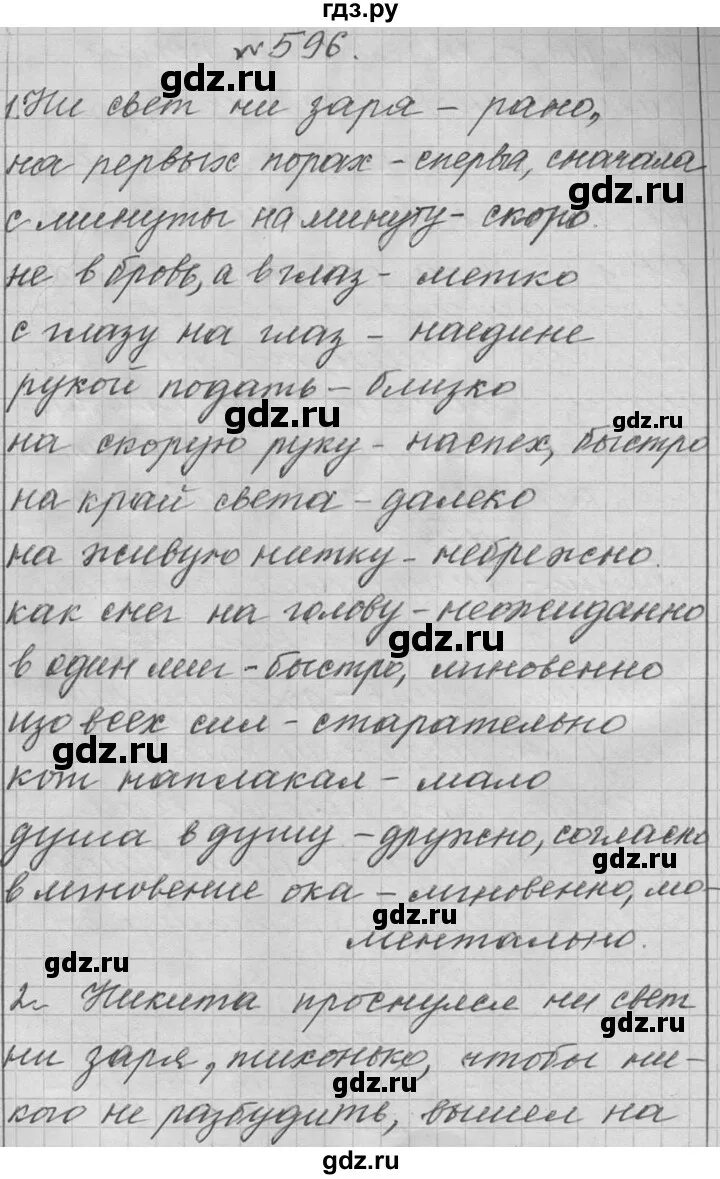 гдз.ру
№596.
gdz.ru
1. Ни свет ни заря – рано,
на первых порах – сперва, сначала
gdz.ru
с минуты на минуту – скоро.
не в бровь, а в глаз – метко
с глазу на глаз – наедине
рукой подать – близко
gdz.ru
gdz.ru
на скорую руку – наспех, быстро
на край света – далеко
на живую нитку – небрежно.
как снег на голову – неожиданно
gdz.ru
в один миг – быстро, мгновенно
изо всех сил – старательно
gdz.ru
кот наплакал – мало
душа в душу – дружно, согласно
gdz.ru
в мгновение ока – мгновенно, мо-
gdz.ru
ментально.
gdz.ru
2. Никита проснулся ни свет
gdz.ru
ни заря, тихонько, чтобы ни-
gdz.ru
кого не разбудить, вышел на
gdz.ru